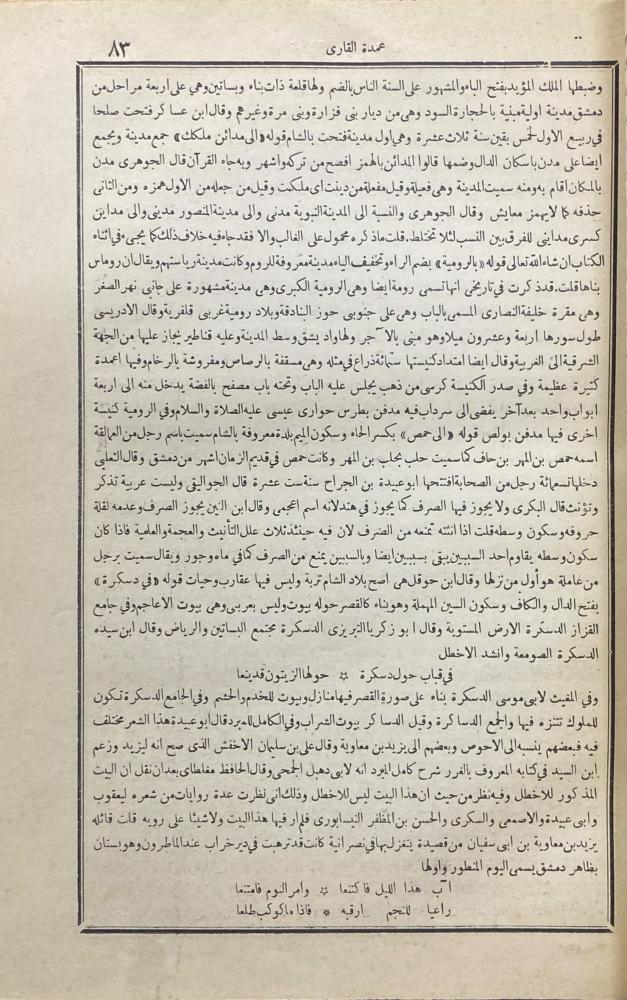 ٨٣
عمدة القارى
وضبطها الملك المؤيد بفتح الباء والمشهور على السنة الناس بالضم ولها قلعة ذات بناء وبساتين وهي على اربعة مراحل من
دمشق مدينة اولية مبنية بالحجارة السود وهي من ديار بنى فزارة وبنى مرة وغيرهم وقال ابن عساكر فتحت صلحا
في ربيع الاول لخمس بقين سنة ثلاث عشرة وهي اول مدينة فتحت بالشام قوله «الى مدائن ملكك» جمع مدينة ويجمع
ايضا على مدن باسكان الدال وضمها قالوا المدائن بالهمز افصح من تركه واشهر وبه جاء القرآن قال الجوهرى مدن
بالمكان اقام به ومنه سميت المدينة وهي فعيلة وقيل مفعلة من دينت اى ملكت وقيل من جعله من الاول همزه ومن الثانى
حذفه كما لا يهمز معايش وقال الجوهرى والنسبة الى المدينة النبوية مدنى والى مدينة المنصور مدينى والى مداين
كسرى مداينى للفرق بين النسب لئلا تختلط. قلت ماذكره محمول على الغالب والا فقد جاء فيه خلاف ذلك كما يجىء في اثناء
الكتاب ان شاء الله تعالى قوله «بالرومية» بضم الراء وتخفيف الياء مدينة معروفة للروم وكانت مدينة رياستهم ويقال ان روماس
بناها قلت. قد ذكرت في تاريخى انها تسمى رومة ايضا وهي الرومية الكبرى وهي مدينة مشهورة على جانبى نهر الصغر
وهي مقرة خليفة النصارى المسمى بالباب وهي على جنوبى حوز البنادقة وبلاد رومية غربى قلفرية وقال الادريسى
طول سورها اربعة وعشرون ميلا وهو مبنى بالآجر ولها واد يشق وسط المدينة وعليه قناطير يجاز عليها من الجهة
الشرقية الى الغربية وقال ايضا امتداد كنيستها ستمائة ذراع في مثله وهي مسقفة بالرصاص ومفروشة بالرخام وفيها اعمدة
كثيرة عظيمة وفي صدر الكنيسة كرسى من ذهب يجلس عليه الباب وتحته باب مصفح بالفضة يدخل منه الى اربعة
ابواب واحد بعد آخر يفضى الى سرداب فيه مدفن بطرس حوارى عيسى عليه الصلاة والسلام وفي الرومية كنيسة
اخرى فيها مدفن بولص قوله «الى حمص» بكسر الحاء وسكون الميم بلدة معروفة بالشام سميت باسم رجل من العمالقة
اسمه حمص بن المهر بن حاف كما سميت حلب بحلب بن المهر وكانت حمص في قديم الزمان اشهر من دمشق وقال الثعلبى
دخلها تسعمائة رجل من الصحابة افتتحها ابو عبيدة بن الجراح سنة ست عشرة قال الجواليقى وليست عربية تذكر
وتؤنث قال البكرى ولا يجوز فيها الصرف كما يجوز في هند لانه اسم اعجمى وقال ابن التين يجوز الصرف وعدمه لقلة
حروفه وسكون وسطه قلت اذا انثته تمنعه من الصرف لان فيه حينئذ ثلاث علل التأنيث والعجمة والعلمية فاذا كان
سكون وسطه يقاوم احد السببين يبقى بسببين ايضا وبالسببين يمنع من الصرف كما في ماه وجور ويقال سميت برجل
من عاملة هو أول من نزلها وقال ابن حوقل هى اصح بلاد الشام تربة وليس فيها عقارب وحيات قوله «في دسكرة»
بفتح الدال والكاف وسكون السين المهملة وهو بناء كالقصر حوله بيوت وليس بعربى وهي بيوت الاعاجم وفي جامع
القزاز الدسكرة الارض المستوية وقال ابو زكريا التبريزى الدسكرة مجتمع البساتين والرياض وقال ابن سيده
الدسكرة الصومعة وانشد الاخطل
في قباب حول دسكرة ☆ حولها الزيتون قد ينعا
وفي المغيث لابى موسى الدسكرة بناء على صورة القصر فيها منازل وبيوت للخدم والحشم وفي الجامع الدسكرة تكون
للملوك تتنزه فيها والجمع الدساكرة وقيل الدساكر بيوت الشراب وفي الكامل للمبرد قال ابو عبيدة هذا الشعر مختلف
فيه فبعضهم ينسبه الى الاحوص وبعضهم الى يزيد بن معاوية وقال على بن سليمان الاخفش الذى صح انه ليزيد وزعم
ابن السيد في كتابه المعروف بالغرر شرح كامل المبرد انه لابى دهبل الجمحى وقال الحافظ مغلطاى بعد ان نقل ان البيت
المذكور للاخطل وفيه نظر من حيث ان هذا البيت ليس للاخطل وذلك انى نظرت عدة روايات من شعره ليعقوب
وابى عبيدة والاصمعى والسكرى والحسن بن المظفر النيسابورى فلم ار فيها هذا البيت ولا شيئا على رويه قلت قائله
يزيد بن معاوية بن ابى سفيان من قصيدة يتغزل بها في نصرانية كانت قد ترهبت في دير خراب عند الماطرون وهو بستان
بظاهر دمشق يسمى اليوم المنطور واولها
آب هذا الليل فاكتنعا ☆ وامر النوم فامتنعا
راعيا للنجم ارقبه * فاذا ما كوكب طلعا